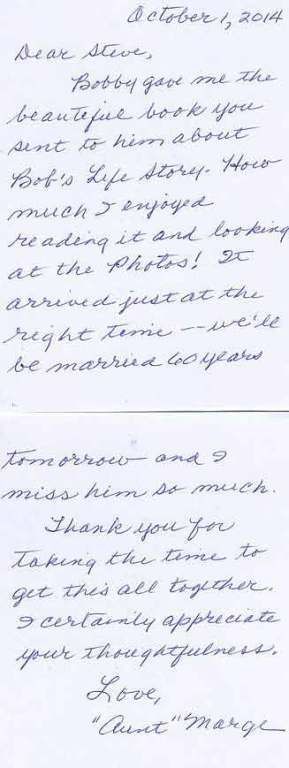 October 1, 2014
Dear Steve,
Bobby gave me the
beautiful book you
sent to him about
Bob's Life Story. How
much I enjoyed
reading it and looking
at the Photos! It
arrived just at the
right time -- we'll
be married 60 years
tomorrow and I
miss him so much.
Thank you for
taking the time to
get this all together.
I certainly appreciate
your thoughtfulness.
Love,
"Aunt" Marge